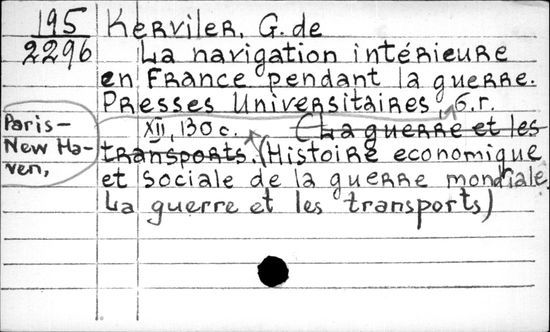 195
2296
Kerviler, G. de
La navigation intérieure
en France pendant la guerre.
Presses Universitaires, б.г.
Paris-
New Ha-
ven,
XII, 130 c. (La guerre et les
transports. (Histoire economique
et sociale de la guerre mondiale.
La guerre et les transports)